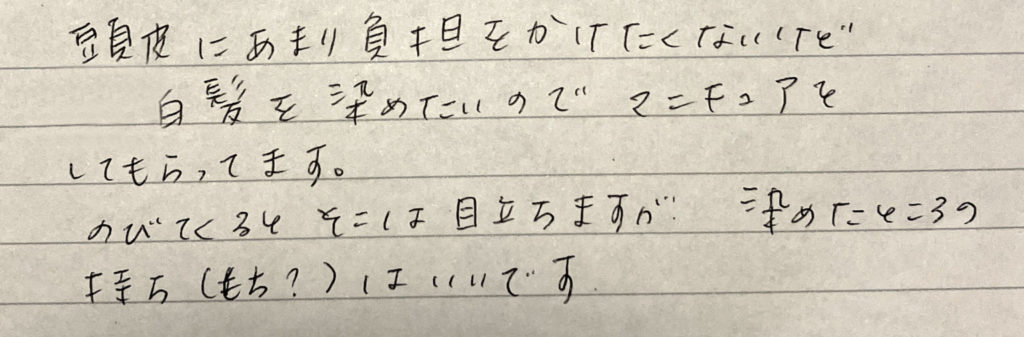 頭皮にあまり負担をかけたくないけど
白髪を染めたいので マニキュアを
してもらってます。
のびてくると そこは目立ちますが 染めたところの
持ち(もち?)はいいです